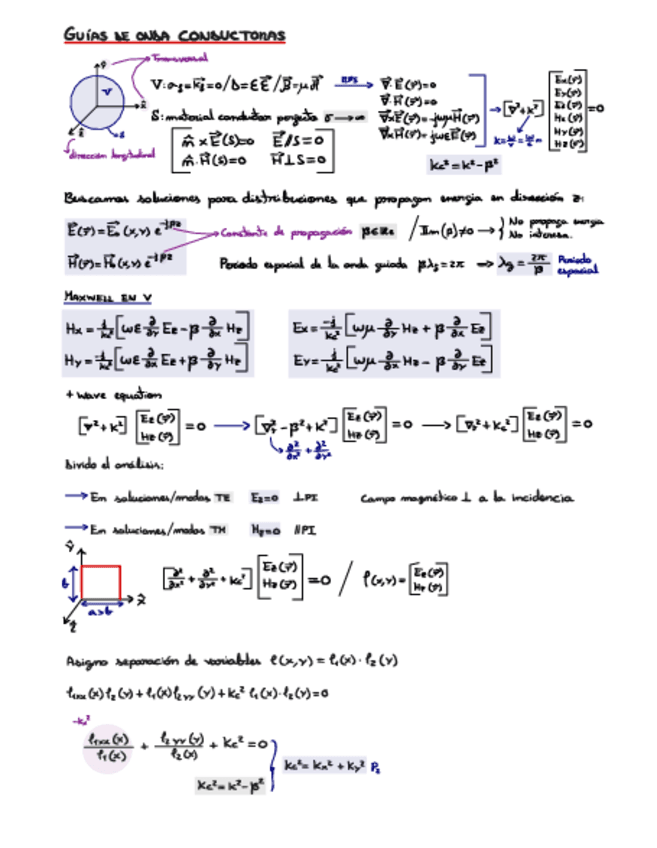 GUÍAS DE ONDA CONDUCTORAS
Transversal
ŷ
V
x̂
ẑ
S
dirección longitudinal
V: σ_s = K⃗_s = 0 / D = εE⃗ / B⃗ = μH⃗
S: material conductor perfecto σ → ∞
n̂ × E⃗(S)=0 E⃗∥S=0
n̂ · H⃗(S)=0 H⊥S=0
∇·E⃗(r⃗)=0
∇·H⃗(r⃗)=0
∇×E⃗(r⃗)=-jωμH⃗(r⃗)
∇×H⃗(r⃗)=jωεE⃗(r⃗)
[∇²+k²] [Ex(r⃗) Ey(r⃗) Ez(r⃗) Hx(r⃗) Hy(r⃗) Hz(r⃗)] = 0
Kc²=k²-β²
Buscamos soluciones para distribuciones que propagan energía en dirección ẑ:
E⃗(r⃗)=E⃗₀(x,y) e^-jβz
H⃗(r⃗)=H⃗₀(x,y) e^-jβz
Constante de propagación β∈ℝe / Im(β)≠0 → { No propaga energía
No interesa.
Periodo espacial de la onda guiada βλg=2π ⇒ λg = 2π/β Periodo espacial
MAXWELL EN V
Hx = j/kc² [ωε ∂/∂y Ez - β ∂/∂x Hz]
Hy = -j/kc² [ωε ∂/∂x Ez + β ∂/∂y Hz]
Ex = -j/kc² [ωμ ∂/∂y Hz + β ∂/∂x Ez]
Ey = j/kc² [ωμ ∂/∂x Hz - β ∂/∂y Ez]
+ wave equation
[∇²+k²] [Ez(r⃗) Hz(r⃗)] = 0 → [∇T²-β²+k²] [Ez(r⃗) Hz(r⃗)] = 0 → [∇T²+kc²] [Ez(r⃗) Hz(r⃗)] = 0
∂²/∂x² + ∂²/∂y²
Divido el análisis:
→ En soluciones/modos TE Ez=0 ⊥PI Campo magnético ⊥ a la incidencia
→ En soluciones/modos TM Hz=0 ∥PI
ŷ
b
x̂
a>b
ẑ
[∂²/∂x² + ∂²/∂y² + kc²] [Ez(r⃗) Hz(r⃗)] = 0 / f(x,y) = [Ez(r⃗) Hz(r⃗)]
Asigno separación de variables f(x,y) = f₁(x)·f₂(y)
f₁xx(x)f₂(y)+f₁(x)f₂yy(y)+kc² f₁(x)·f₂(y)=0
-kx²
f₁xx(x)/f₁(x) + f₂yy(y)/f₂(x) + kc² = 0
kc²=k²-β²
kc²=kx²+ky²